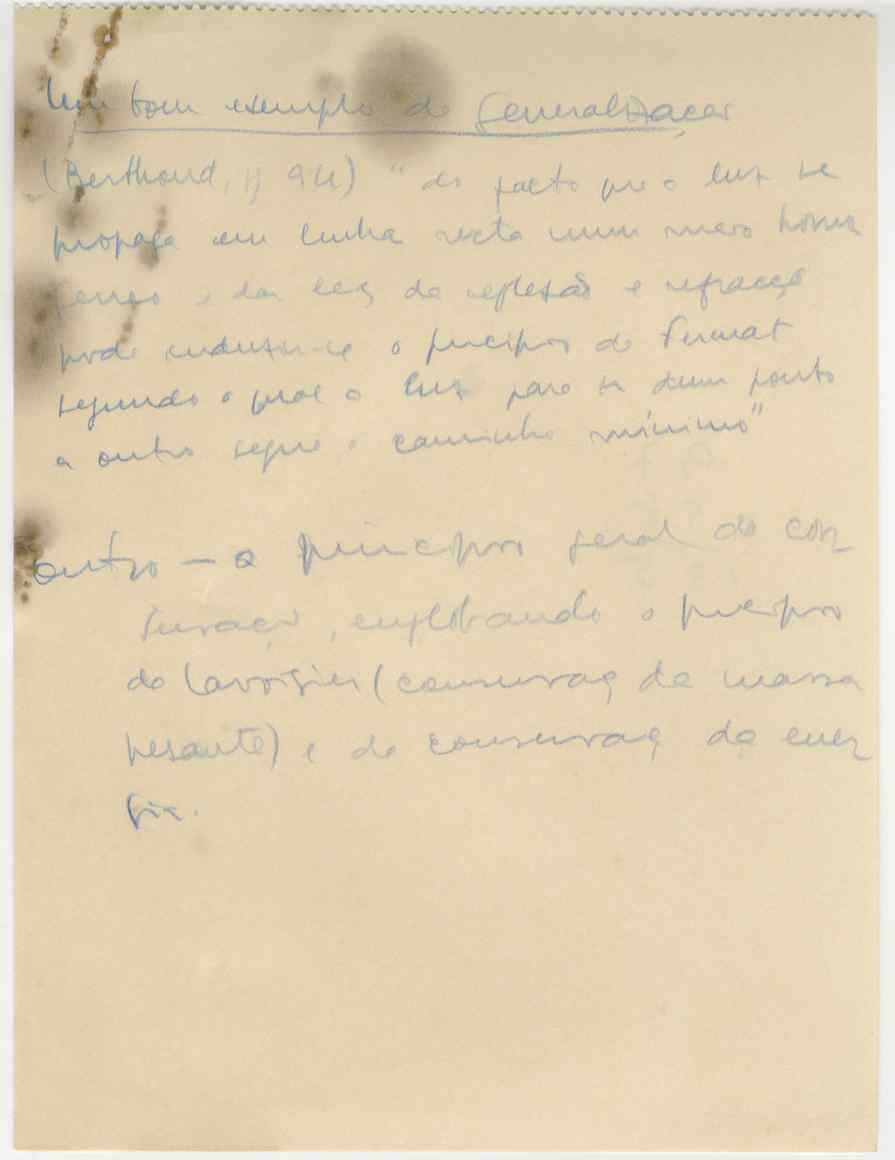 Um bom exemplo de Generalização
(Berthoud, 94) "do facto que a luz se
propaga em linha recta num meio homo
géneo e das leis da reflexão e refracção
pode induzir-se o principio de Fermat
segundo o qual a luz para ir dum ponto
a outro segue o caminho mínimo"
Outro — o principio geral da con
servação, englobando o principio
de Lavoisier (conservaç da massa
pesante) e da conservaç da ener
gia.